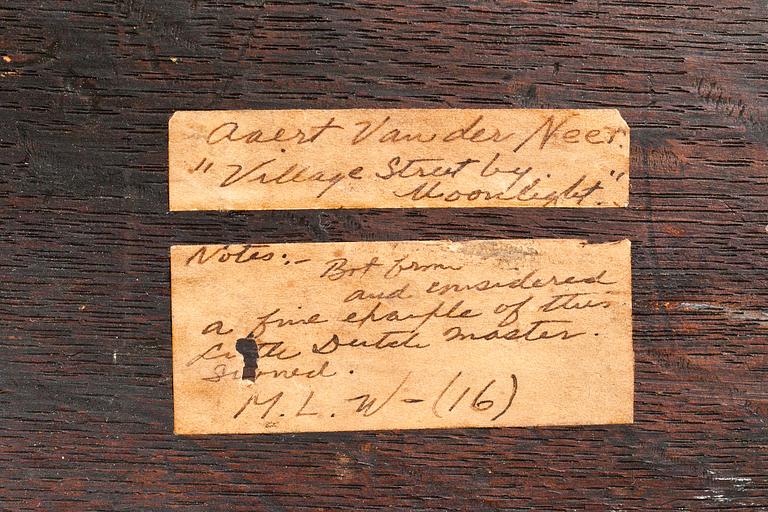 Aaert Van der Neer.
"Village Street by
Moonlight."
Notes:-
Bot from
and considered
a fine example of this
Little Dutch master.
Signed.
M. L. W - (16)